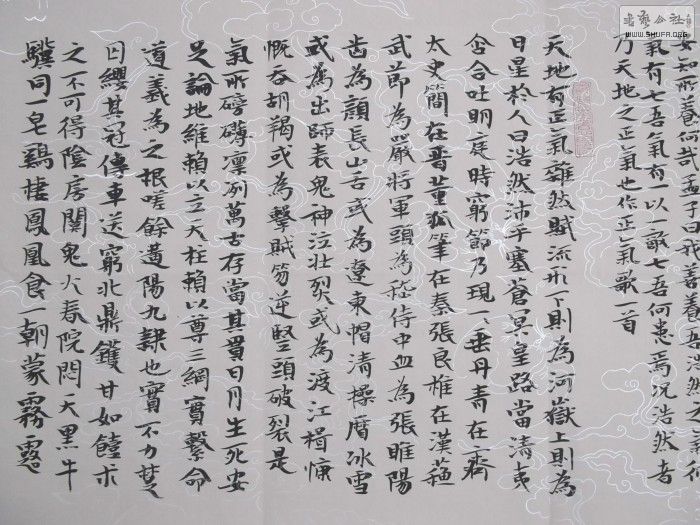 书艺公社
WWW.SHUFA.ORG
知所養何哉孟子曰我善養吾浩然之氣彼
氣有七吾氣有一以一敵七吾何患焉況浩然者
乃天地之正氣也作正氣歌一首
天地有正氣雜然賦流形下則為河嶽上則為
日星於人曰浩然沛乎塞蒼冥皇路當清夷
含合吐明庭時窮節乃現一一垂丹青在齊
太史簡在晉董狐筆在秦張良椎在漢蘇
武節為嚴將軍頭為嵇侍中血為張睢陽
齒為顏長山舌或為遼東帽清操厲冰雪
或為出師表鬼神泣壯烈或為渡江楫慷
慨吞胡羯或為擊賊笏逆豎頭破裂是
氣所磅礴凜冽萬古存當其貫日月生死安
足論地維賴以立天柱賴以尊三綱實繫命
道義為之根嗟餘遘陽九隸也實不力楚
囚纓其冠傳車送窮北鼎鑊甘如饐求
之不可得陰房闃鬼火春院閟天黑牛
驥同一皂鷄棲鳳凰食一朝蒙霧露